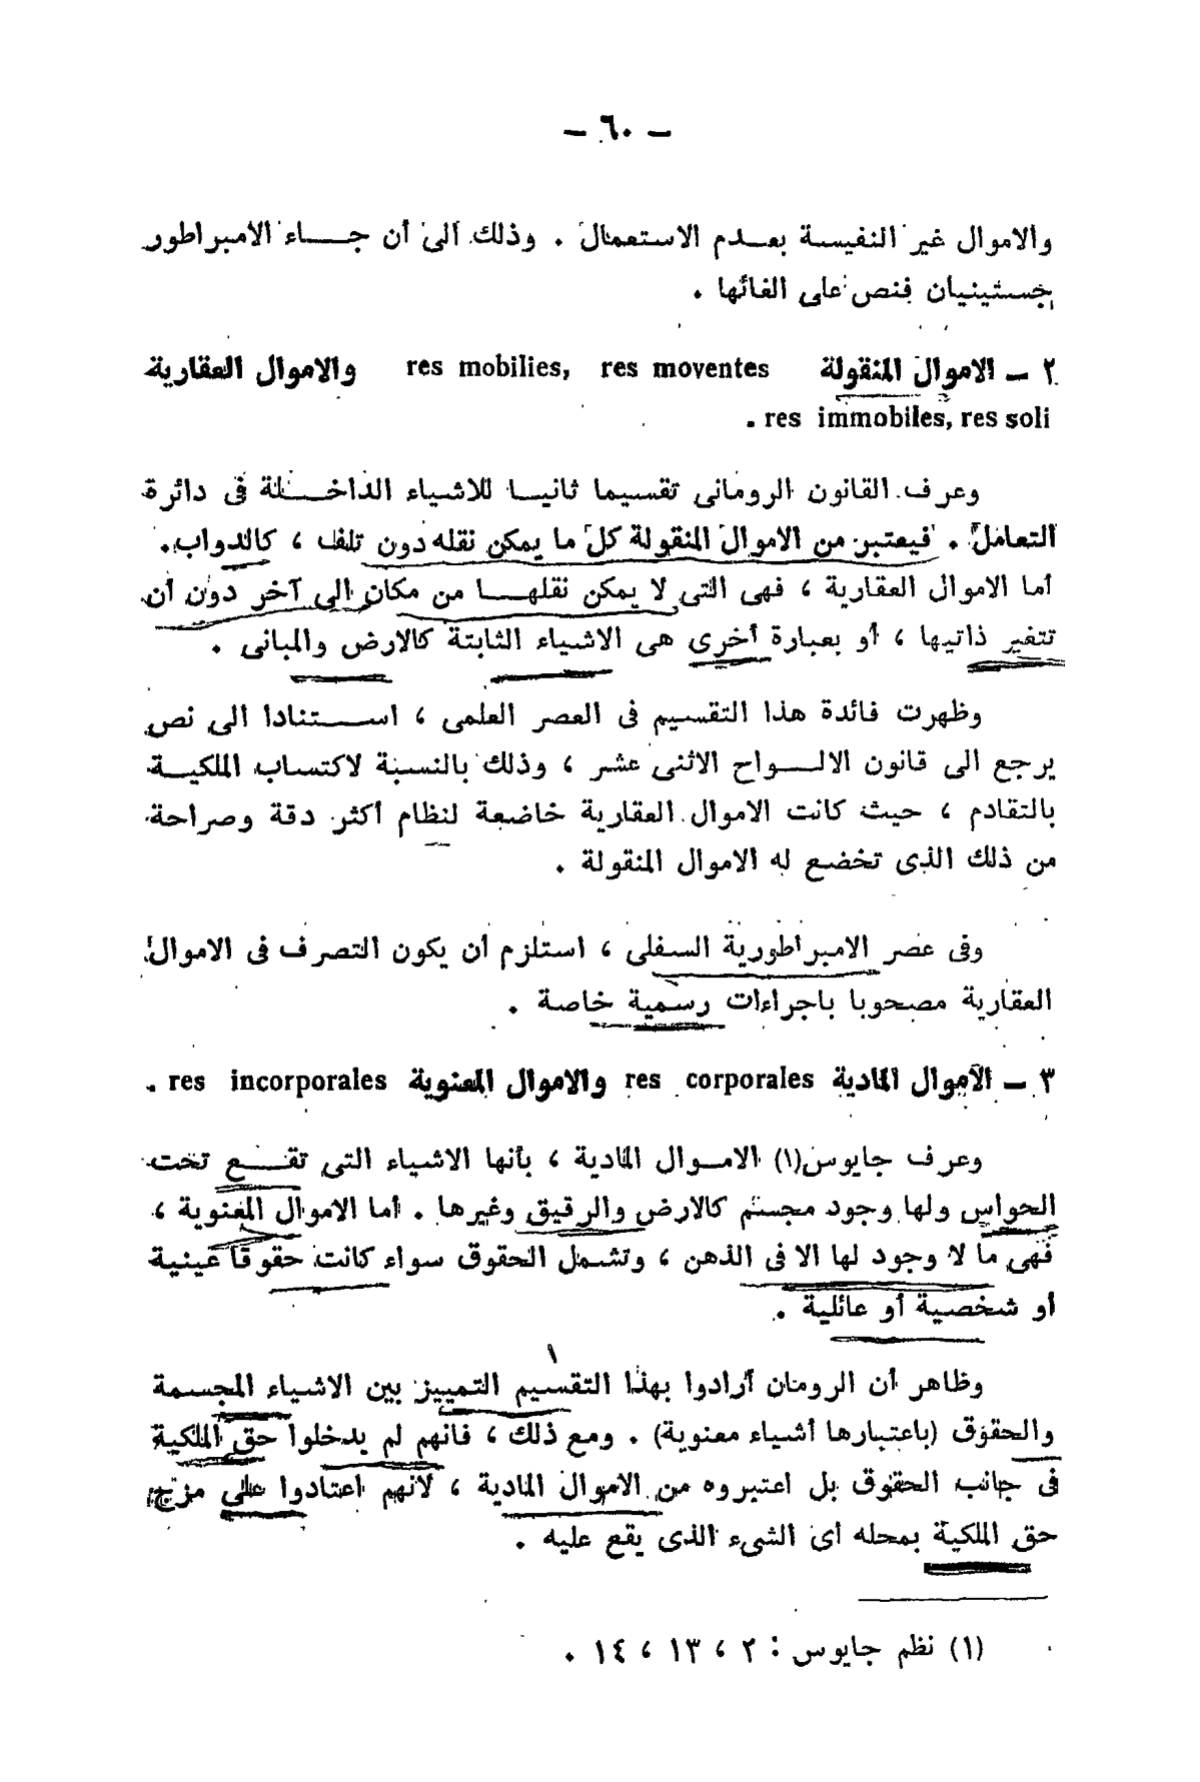 – ٦٠ –
والاموال غير النفيسة بعدم الاستعمال . وذلك الى أن جاء الامبراطور
جستينيان فنص على الغائها .
٢ – الاموال المنقولة res mobilies, res moventes والاموال العقارية
res immobiles, res soli .
وعرف القانون الرومانى تقسيما ثانيا للاشياء الداخلة فى دائرة
التعامل . فيعتبر من الاموال المنقولة كل ما يمكن نقله دون تلف ، كالدواب .
أما الاموال العقارية ، فهى التى لا يمكن نقلها من مكان الى آخر دون أن
تتغير ذاتيها ، أو بعبارة أخرى هى الاشياء الثابتة كالارض والمبانى .
وظهرت فائدة هذا التقسيم فى العصر العلمى ، استنادا الى نص
يرجع الى قانون الالواح الاثنى عشر ، وذلك بالنسبة لاكتساب الملكية
بالتقادم ، حيث كانت الاموال العقارية خاضعة لنظام أكثر دقة وصراحة
من ذلك الذى تخضع له الاموال المنقولة .
وفى عصر الامبراطورية السفلى ، استلزم أن يكون التصرف فى الاموال
العقارية مصحوبا باجراءات رسمية خاصة .
٣ – الأموال المادية res corporales والاموال المعنوية res incorporales .
وعرف جايوس(١) الاموال المادية ، بأنها الاشياء التى تقع تحت
الحواس ولها وجود مجسم كالارض والرقيق وغيرها . أما الاموال المعنوية ،
فهى ما لا وجود لها الا فى الذهن ، وتشمل الحقوق سواء كانت حقوقا عينية
أو شخصية أو عائلية .
وظاهر أن الرومان أرادوا بهذا التقسيم التمييز بين الاشياء المجسمة
والحقوق (باعتبارها أشياء معنوية) . ومع ذلك ، فانهم لم يدخلوا حق الملكية
فى جانب الحقوق بل اعتبروه من الاموال المادية ، لانهم اعتادوا على مزج
حق الملكية بمحله أى الشىء الذى يقع عليه .
(١) نظم جايوس : ٢ ، ١٣ ، ١٤ .